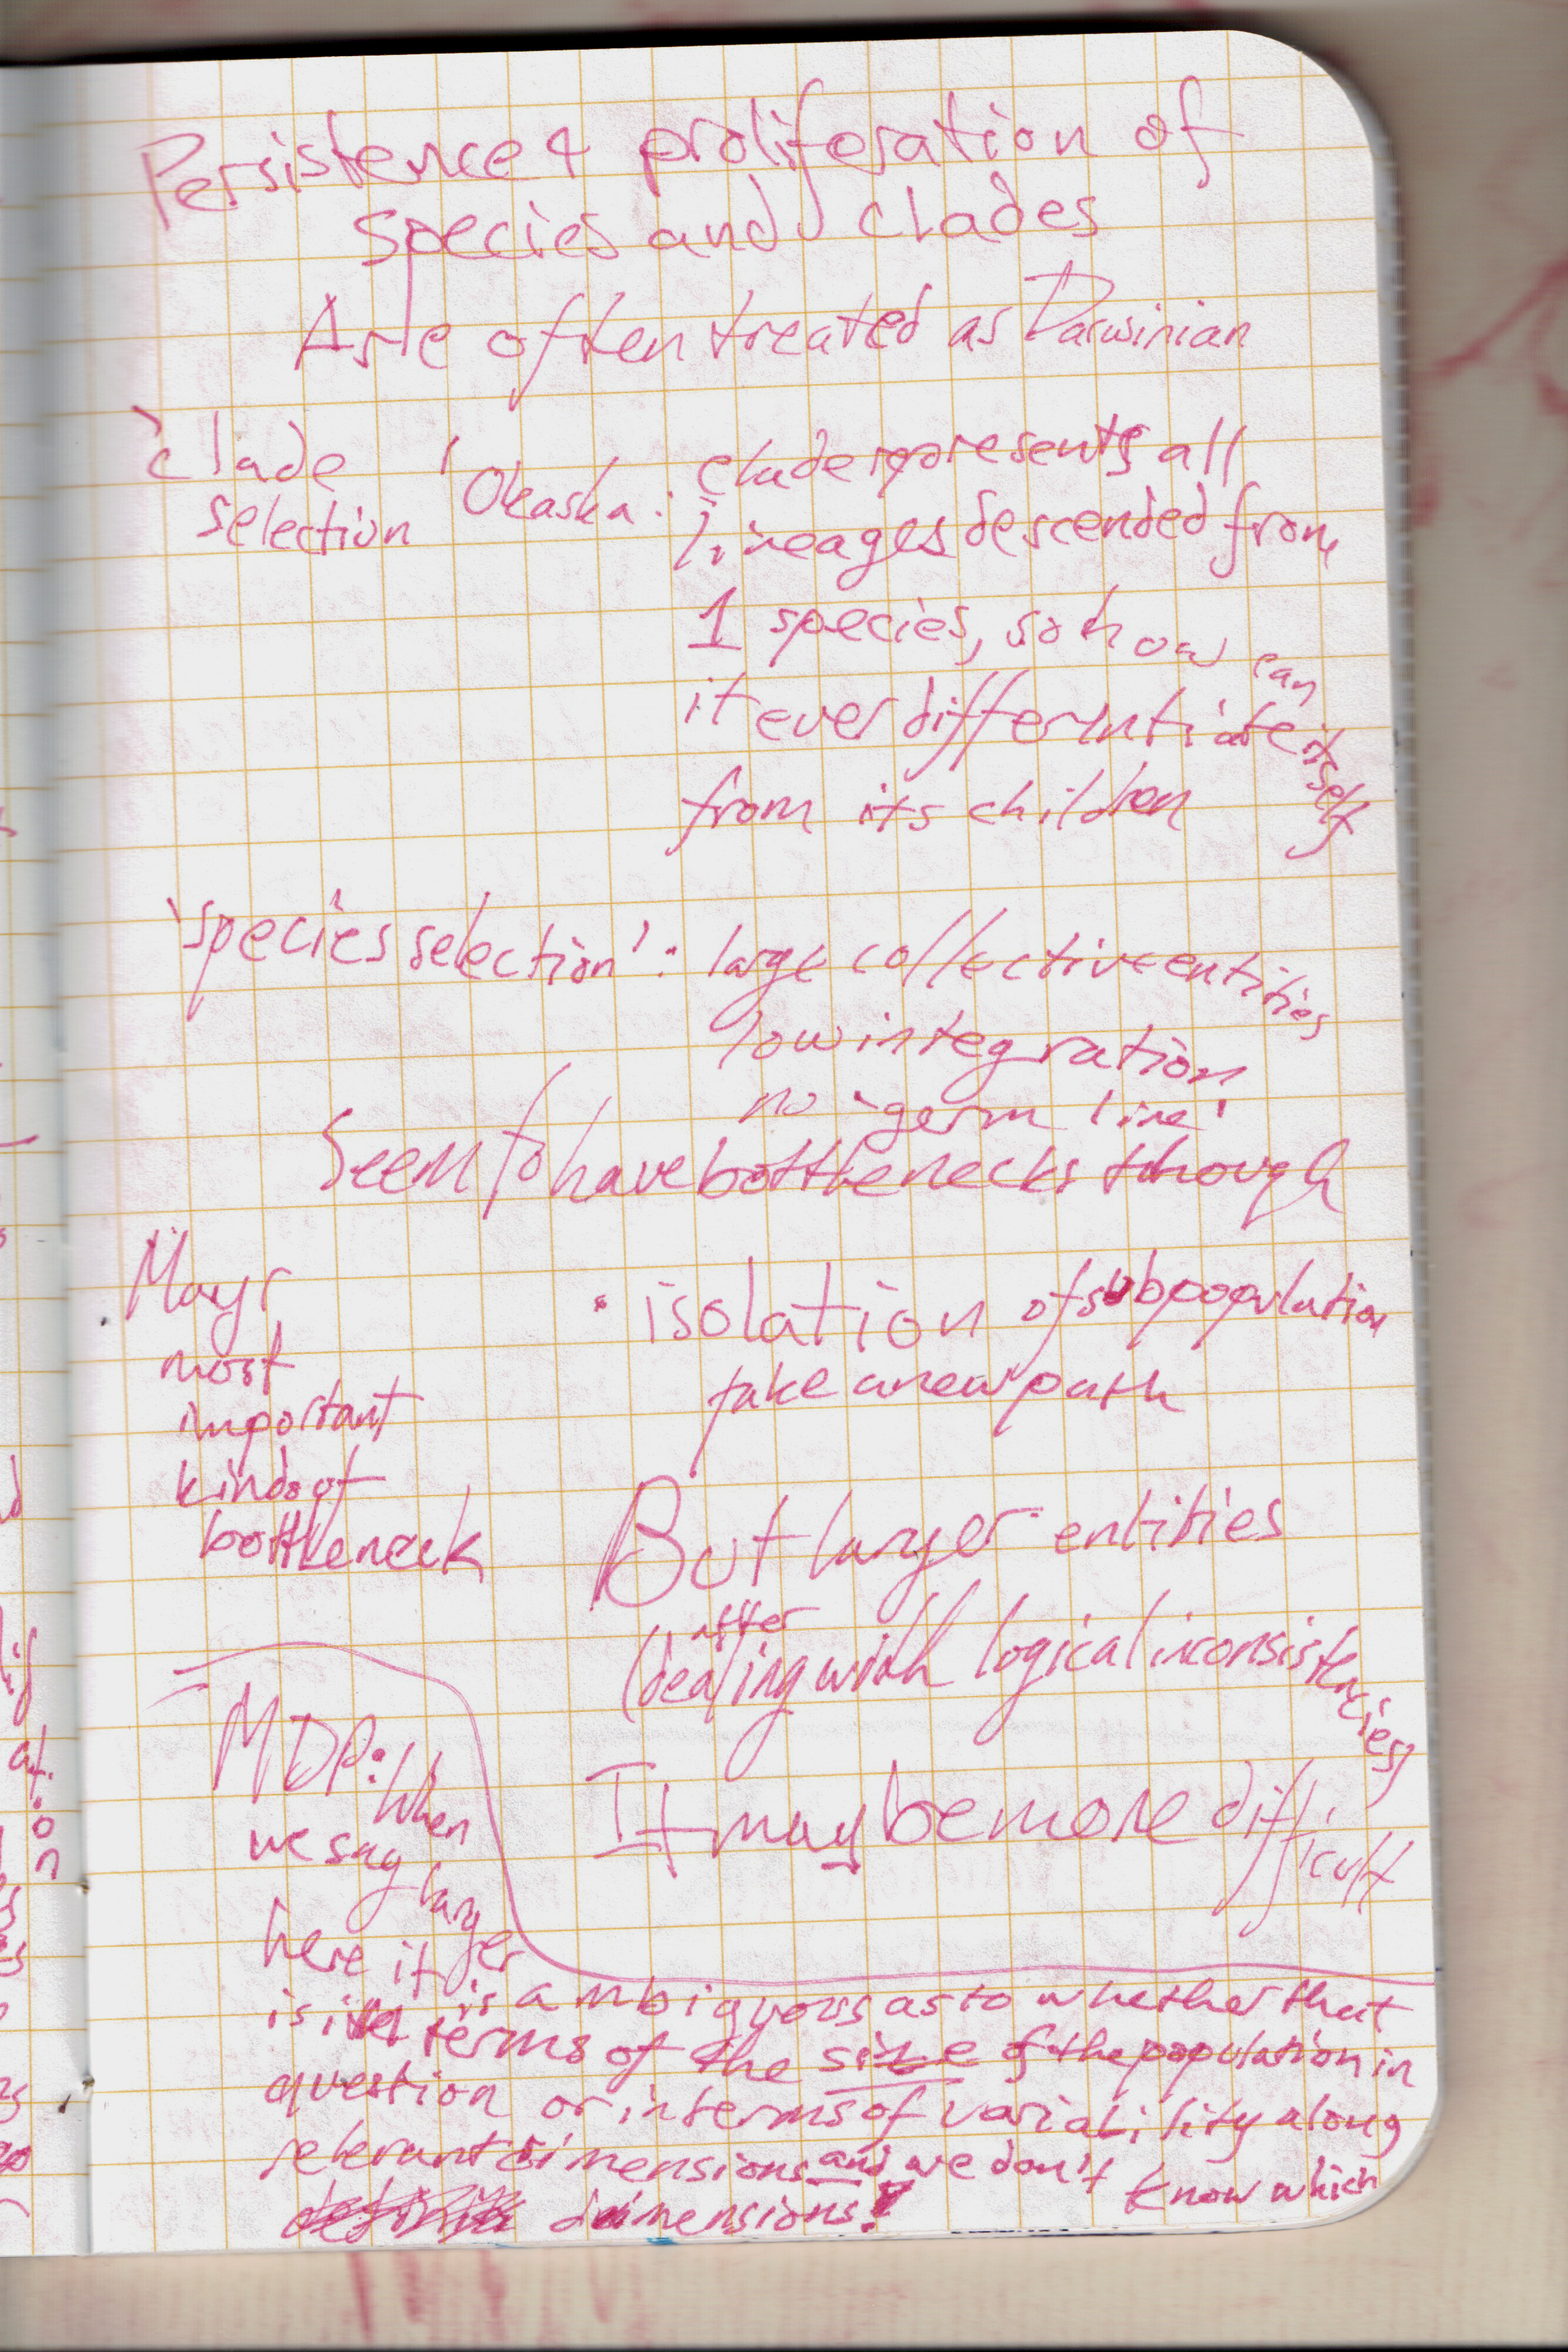 Persistence & proliferation of
species and clades
Are often treated as Darwinian
'clade
selection'
Okasha: clade represents all
lineages descended from
1 species, so how can
it ever differentiate itself
from its children
'species selection': large collective entities
low integration
no 'germ line'
Seem to have bottlenecks though
Mayr
most
important
kind of
bottleneck
· isolation of subpopulation
take a new path
But larger entities
(after dealing with logical inconsistencies)
It may be more difficult
MDP: When
we say larger
here it
is is ambiguous as to whether that
is in terms of the size of the population in
question or in terms of variability along
relevant dimensions and we don't know which
dimensions!